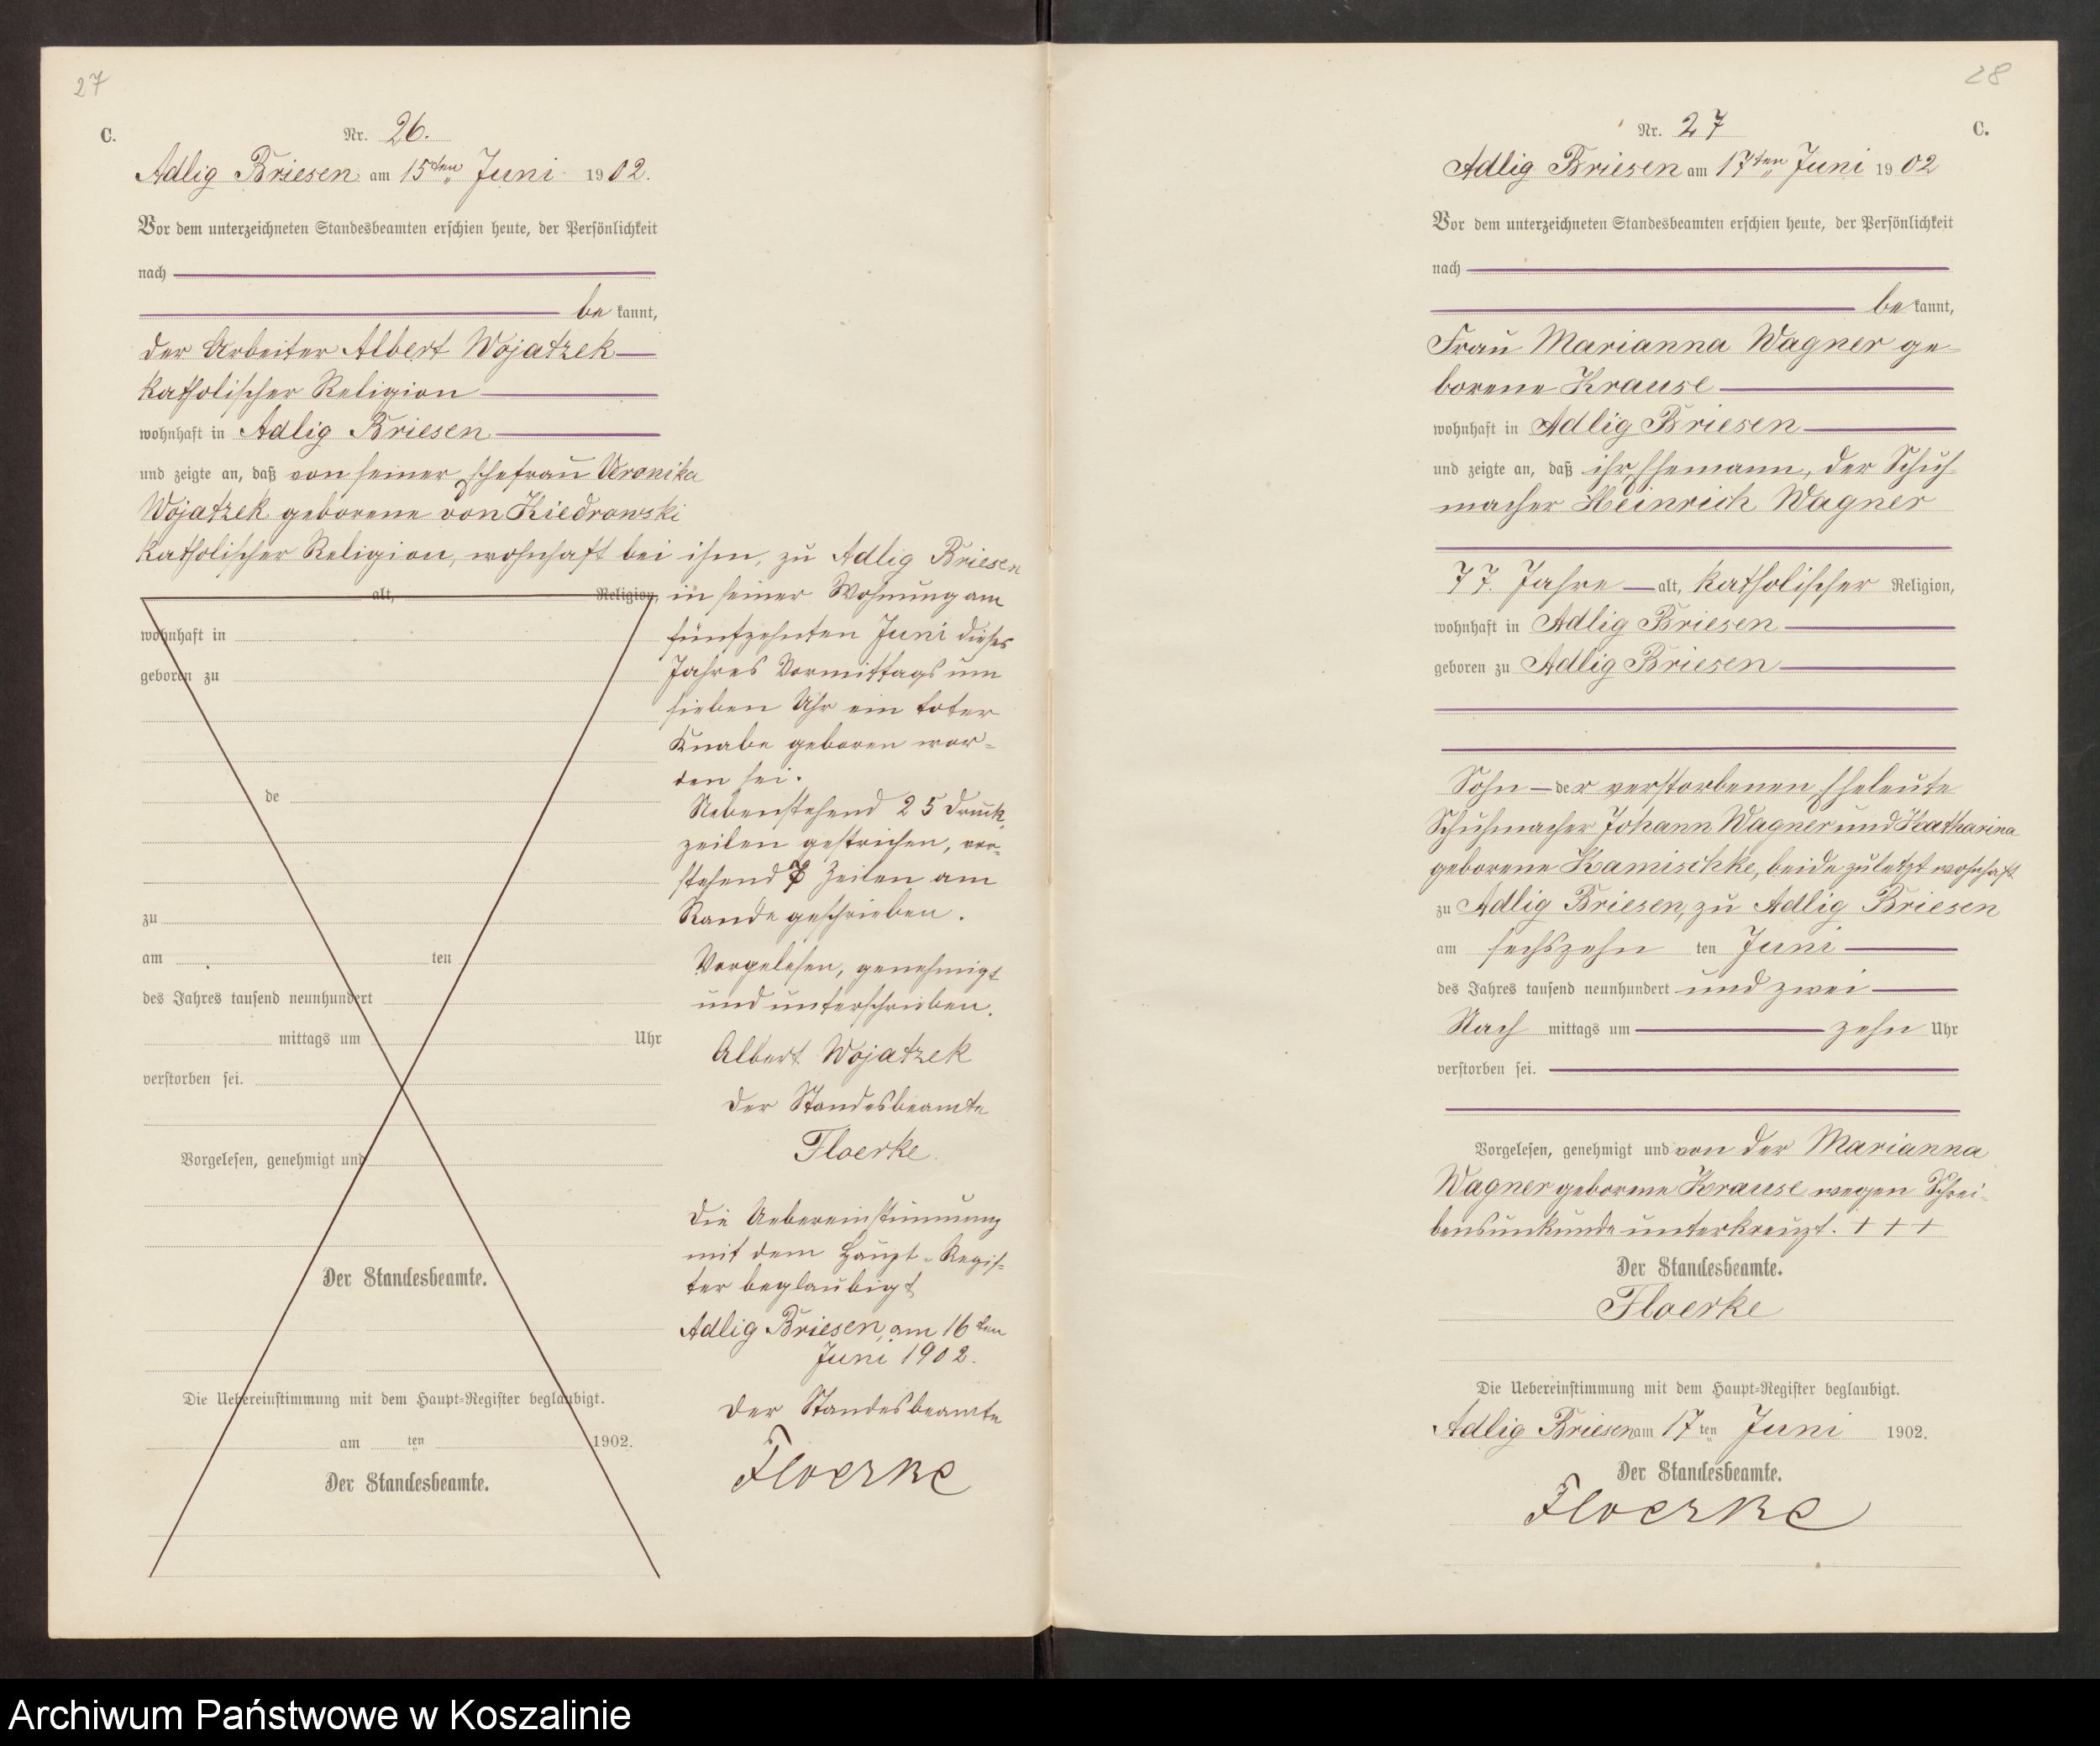 27
C.
Nr. 26.
Adlig Briesen am 15ten Juni 1902.
Vor dem unterzeichneten Standesbeamten erschien heute, der Persönlichkeit
nach
be kannt,
der Arbeiter Albert Wojatzek
katholischer Religion
wohnhaft in Adlig Briesen
und zeigte an, daß von seiner Ehefrau Veronika
Wojatzek geborene von Kiedrowski
katholischer Religion, wohnhaft bei ihm, zu Adlig Briesen
alt, Religion, in seiner Wohnung am
wohnhaft in fünfzehnten Juni dieses
geboren zu Jahres Vormittags um
sieben Uhr ein toter
Knabe geboren wor-
den sei.
de Nebenstehend 25 Druck-
zeilen gestrichen, vor-
stehend 7 Zeilen am
zu Rande geschrieben.
am ten Vorgelesen, genehmigt
des Jahres tausend neunhundert und unterschrieben.
mittags um Uhr Albert Wojatzek
verstorben sei. Der Standesbeamte
Vorgelesen, genehmigt und Floerke.
Die Uebereinstimmung
mit dem Haupt-Regis-
Der Standesbeamte. ter beglaubigt
Adlig Briesen, am 16ten
Juni 1902.
Die Uebereinstimmung mit dem Haupt-Register beglaubigt. Der Standesbeamte
am ten 1902.
Der Standesbeamte. Floerke
28
C.
Nr. 27
Adlig Briesen am 17ten Juni 1902
Vor dem unterzeichneten Standesbeamten erschien heute, der Persönlichkeit
nach
be kannt,
Frau Marianna Wagner ge-
borene Krause
wohnhaft in Adlig Briesen
und zeigte an, daß ihr Ehemann, der Schuh-
macher Heinrich Wagner
77. Jahre alt, katholischer Religion,
wohnhaft in Adlig Briesen
geboren zu Adlig Briesen
Sohn der verstorbenen Eheleute
Schuhmacher Johann Wagner und Katharina
geborene Kamischke, beide zuletzt wohnhaft
zu Adlig Briesen, zu Adlig Briesen
am sechszehn ten Juni
des Jahres tausend neunhundert und zwei
Nach mittags um zehn Uhr
verstorben sei.
Vorgelesen, genehmigt und von der Marianna
Wagner geborene Krause wegen Schrei-
bensunkunde unterkreuzt. + + +
Der Standesbeamte.
Floerke
Die Uebereinstimmung mit dem Haupt-Register beglaubigt.
Adlig Briesen am 17ten Juni 1902.
Der Standesbeamte.
Floerke
Archiwum Państwowe w Koszalinie